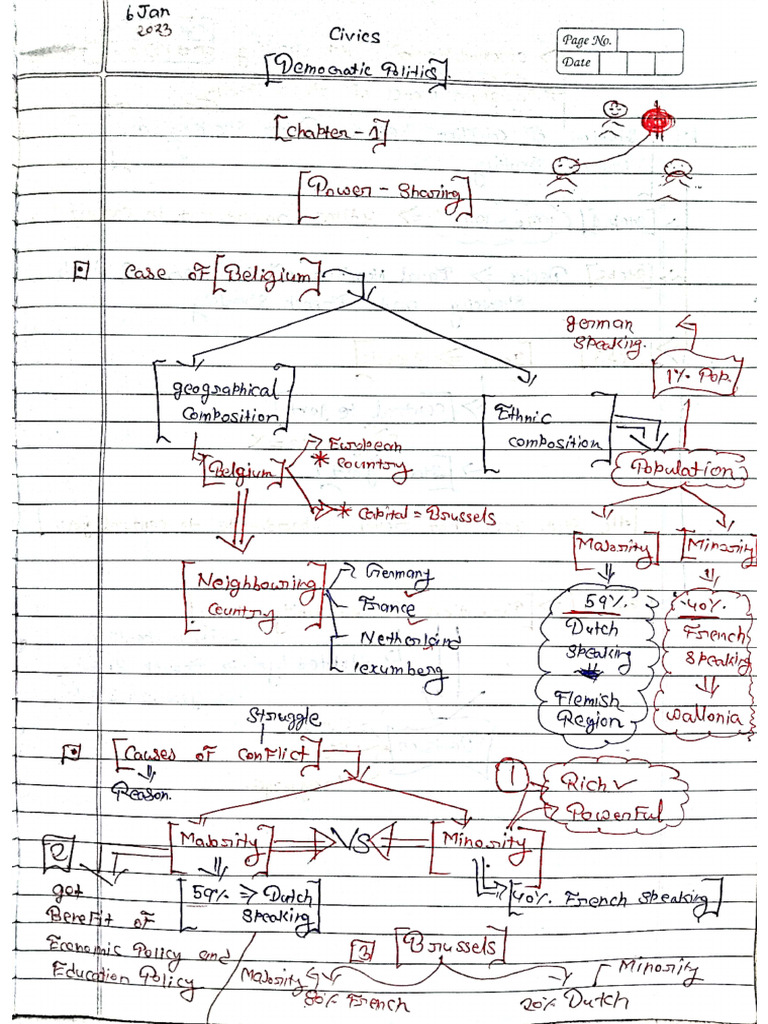 6 Jan
2023
Civics
Page No.
Date
[Democratic Politics].
[Chapter-1]
[Power - Sharing]
Case of [Beligium]
german
speaking.
1% Pop.
geographical
composition
Ethnic
composition
Population
[Belgium]
European
* country
* Capital = Brussels
[Majority]
[Minority]
Neighbouring
country
Germany
France
Netherland
lexumberg
59%
Dutch
speaking
Flemish
Region
40%
French
speaking
Wallonia
struggle
[Causes of conflict]
Reason.
1
Rich ✓
Powerful
2
[Majority]
VS
[Minority]
get
Benefit of
Economic Policy and
Education Policy
59% ⇒ Dutch
speaking
[40% French speaking]
3
[Brussels]
Majority
80% French
Minority
20% Dutch